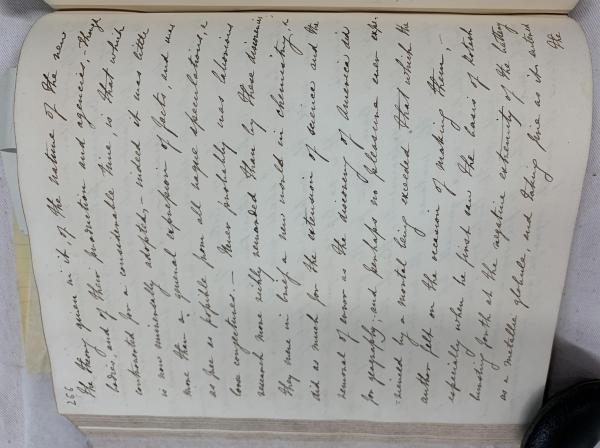 266
the theory given in it of the nature of the new
bodies, and of their production and agencies, though
controverted for a considerable time, is that which
is now universally adopted; – indeed it was little
more than a general expression of facts, and was
as free as possible from all vague speculations, &
loose conjectures. – Never probably was laborious
research more richly rewarded than by these discoveries;
they were in brief a new world in chemistry, &
did as much for the extension of science and the
removal of error as the discovery of America did
for geography; and perhaps no pleasure ever expe-
-rienced by a mortal being exceeded that which the
author felt on the occasion of making them, –
especially when he first saw the basis of potash
bursting forth at the negative extremity of the battery
as a metallic globule and taking fire as it entered
the